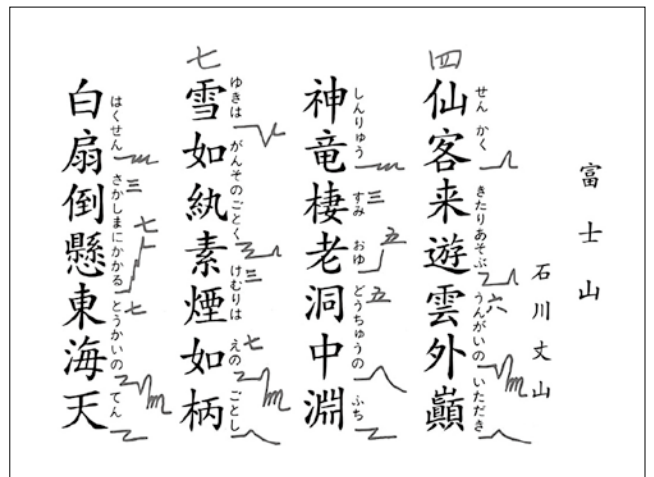 富士山
石川丈山
四
仙客来遊雲外巓
せんかく きたりあそぶ うんがいの いただき
六
神竜棲老洞中淵
しんりゅう すみ おゆ どうちゅうの ふち
三 五 五
七
雪如紈素煙如柄
ゆきは がんそのごとく けむりは えの ごとし
三 七
白扇倒懸東海天
はくせん さかしまにかかる とうかいの てん
三 七 七